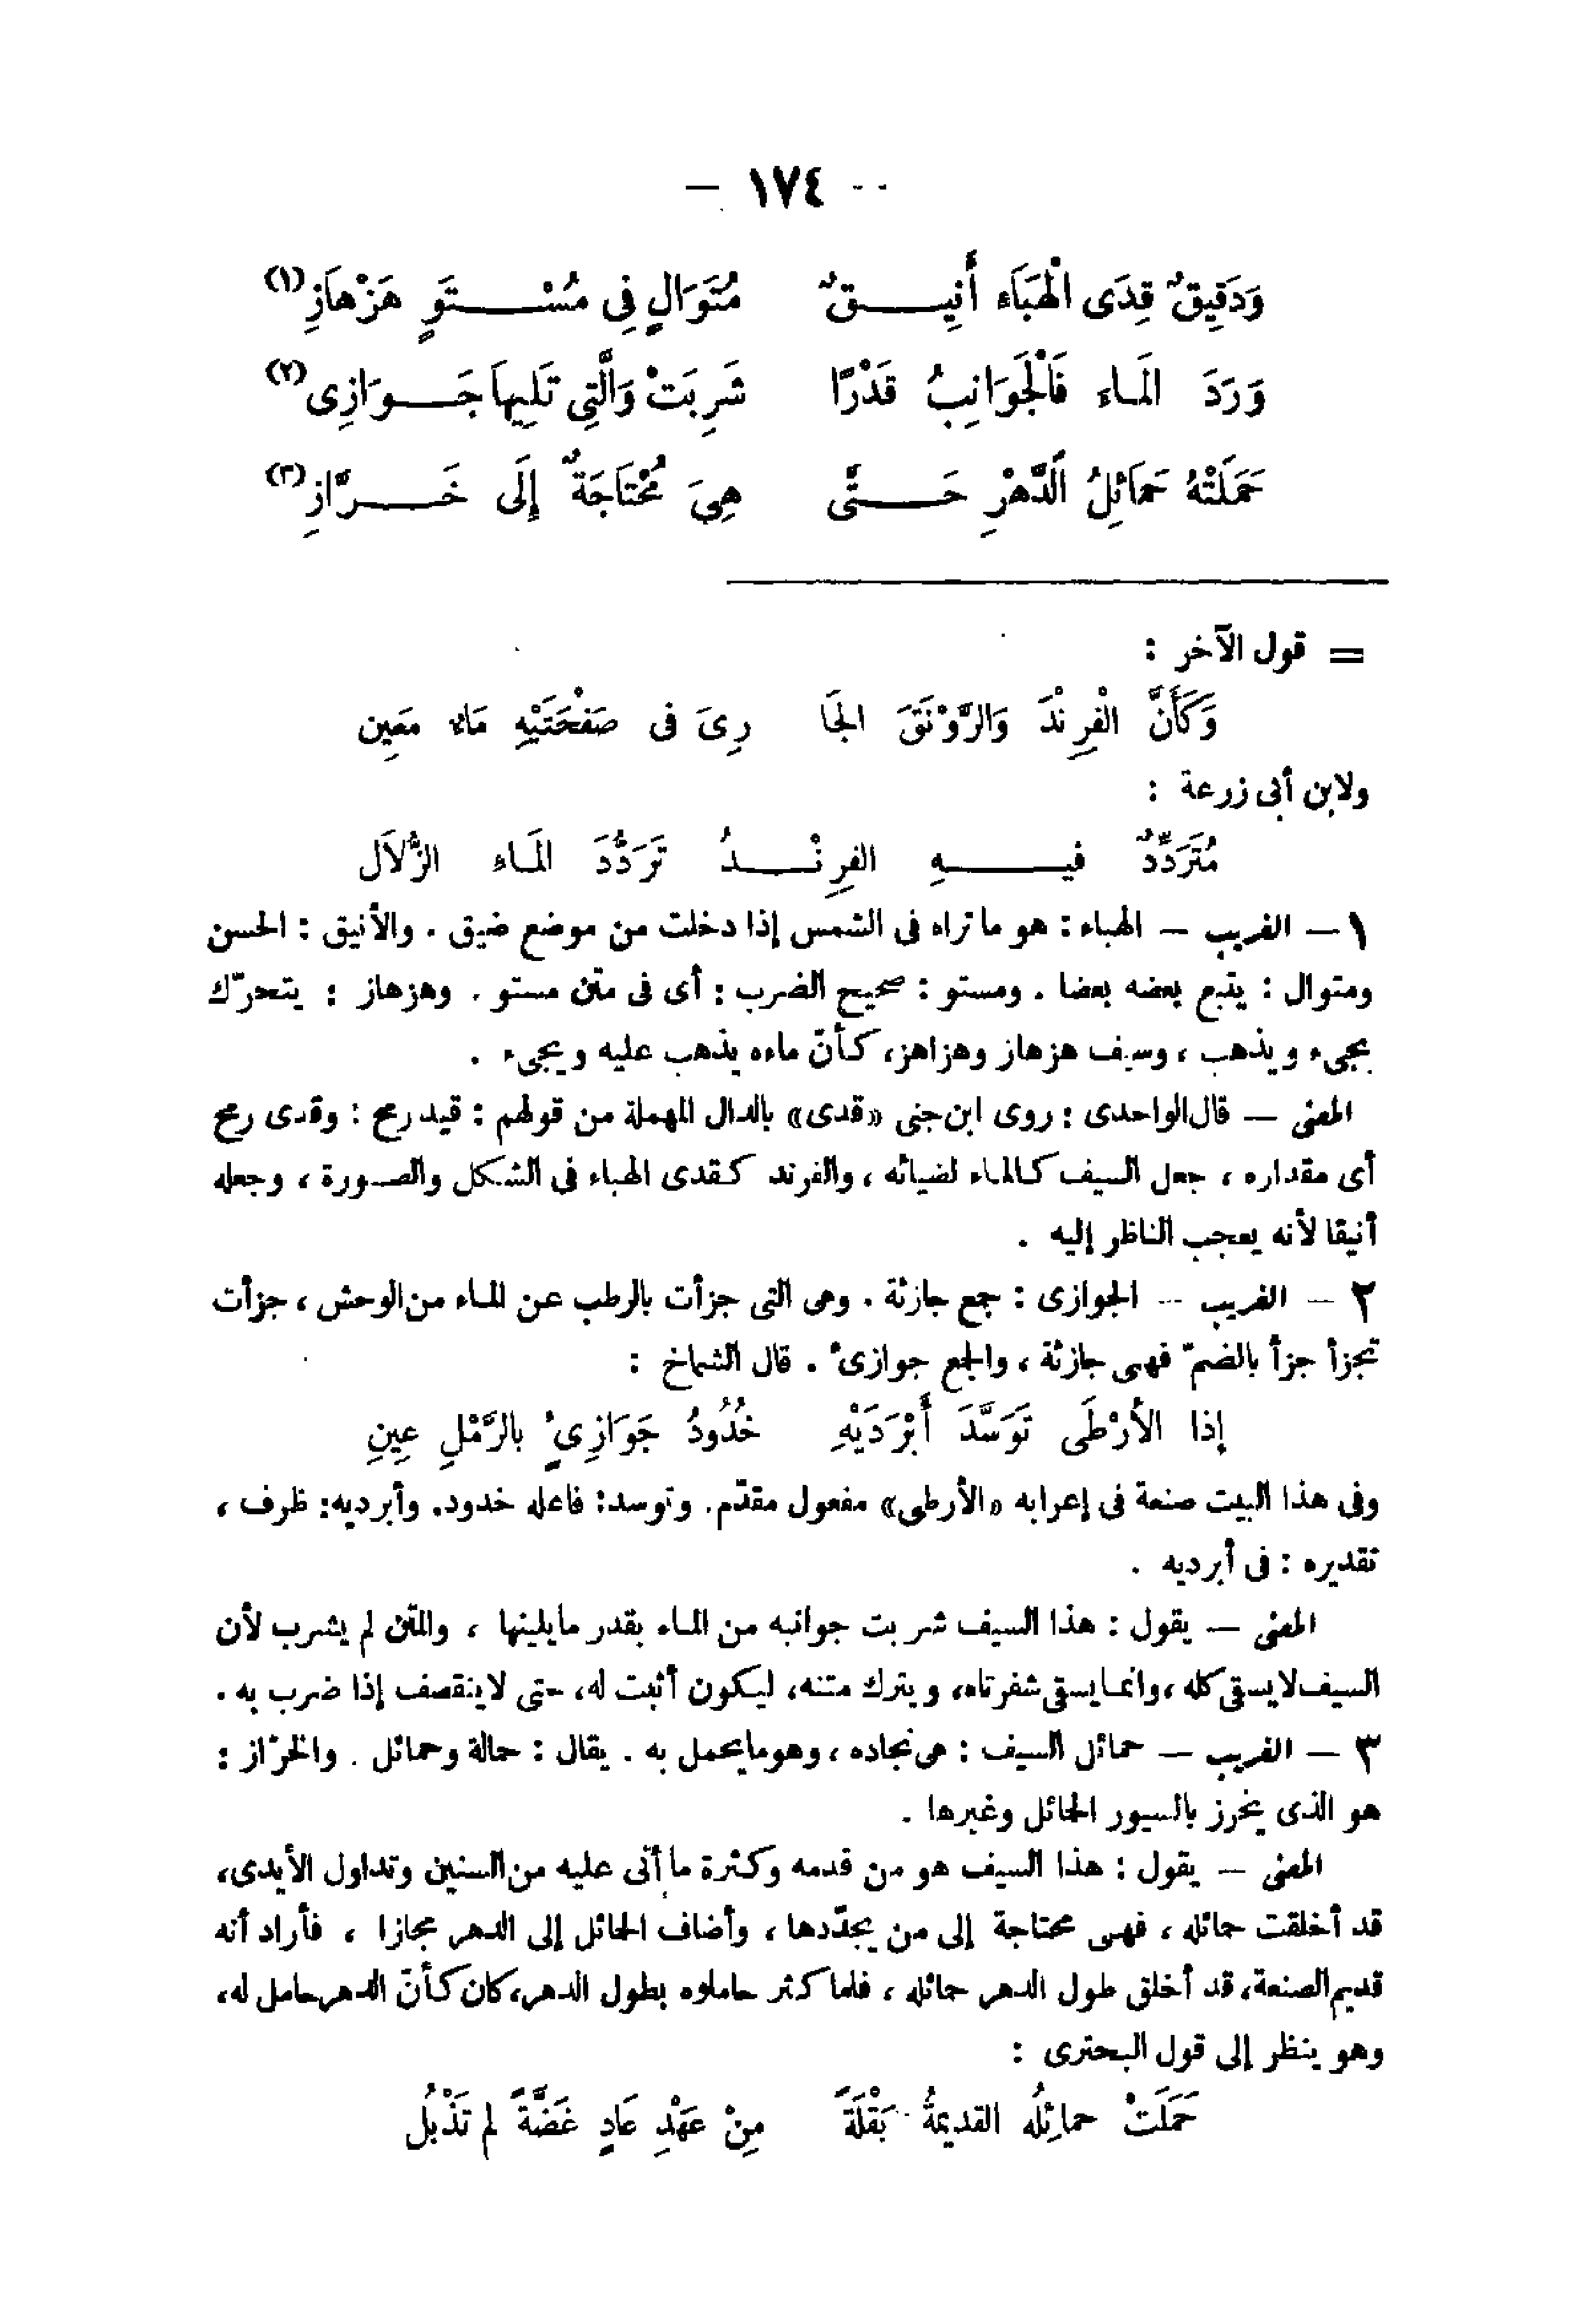 - ١٧٤ -
وَدَقِيقٌ قِدَى الْهَبَاءِ أَنِيـــقٌ مُتَوَالٍ فِى مُسْـــتَوٍ هَزْهازِ (١)
وَرَدَ المَـاءَ فَالْجَوَانِبُ قَدْرًا شَرِبَتْ وَالَّتِى تَلِيهاَ جَـــوَازِى (٢)
حَمَلَتْهُ حَمَائِلُ الدَّهْرِ حَـــتَّى هِىَ مُحْتاَجَةٌ إِلَى خَـــرَّازِ (٣)
= قول الآخر :
وَكَأَنَّ الْفِرِنْدَ وَالرَّوْنَقَ الجَا رِىَ فى صَفْحَتَيْهِ مَاءٌ مَعِين
ولابن أبى زرعة :
مُتَرَدِّدٌ فيـــهِ الفِرِنْـــدُ تَرَدُّدَ المَـاءِ الزُّلاَل
١ – الغريب – الهباء : هو ما تراه فى الشمس إذا دخلت من موضع ضيق . والأنيق : الحسن
ومتوال : يتبع بعضه بعضا . ومستو : صحيح الضرب : أى فى متن مستو . وهزهاز : يتحرّك
يجىء ويذهب ، وسيف هزهاز وهزاهز، كأنّ ماءه يذهب عليه ويجىء .
المعنى – قال الواحدى : روى ابن جنى «قدى» بالدال المهملة من قولهم : قيد رمح : وقدى رمح
أى مقداره ، جعل السيف كالماء لضيائه ، والفرند كقدى الهباء فى الشكل والصورة ، وجعله
أنيقا لأنه يعجب الناظر إليه .
٢ – الغريب – الجوازى : جمع جازئة . وهى التى جزأت بالرطب عن المـاء من الوحش ، جزأت
تجزأ جزأ بالضمّ فهى جازئة ، والجمع جوازىء . قال الشماخ :
إذا الأَرْطَى تَوَسَّدَ أَبْرَدَيْهِ خُدُودُ جَوَازِىءٍ بالرَّمْلِ عِينِ
وفى هذا البيت صنعة فى إعرابه «الأرطى» مفعول مقدّم. وتوسد: فاعله خدود. وأبرديه: ظرف ،
تقديره : فى أبرديه .
المعنى – يقول : هذا السيف شربت جوانبه من المـاء بقدر مايلينها ، والمتن لم يشرب لأن
السيف لايسقى كله ، وانمـا يسقى شفرتاه، ويترك متنه، ليكون أثبت له، حتى لاينقصف إذا ضرب به .
٣ – الغريب – حمـائل السيف : هى نجاده ، وهو مايحمل به . يقال : حمالة وحمـائل . والخرّاز :
هو الذى يخرز بالسيور الحمائل وغيرها .
المعنى – يقول : هذا السيف هو من قدمه وكثرة ما أتى عليه من السنين وتداول الأيدى،
قد أخلقت حمائله ، فهى محتاجة إلى من يجدّدها ، وأضاف الحمائل إلى الدهر مجازا ، فأراد أنه
قديم الصنعة، قد أخلق طول الدهر حمائله ، فلما كثر حاملوه بطول الدهر، كان كأنّ الدهر حامل له،
وهو ينظر إلى قول البحترى :
حَمَلَتْ حمائِلُه القديمةُ بَقْلَةً مِنْ عَهْدِ عَادٍ غَضَّةً لم تَذْبُل